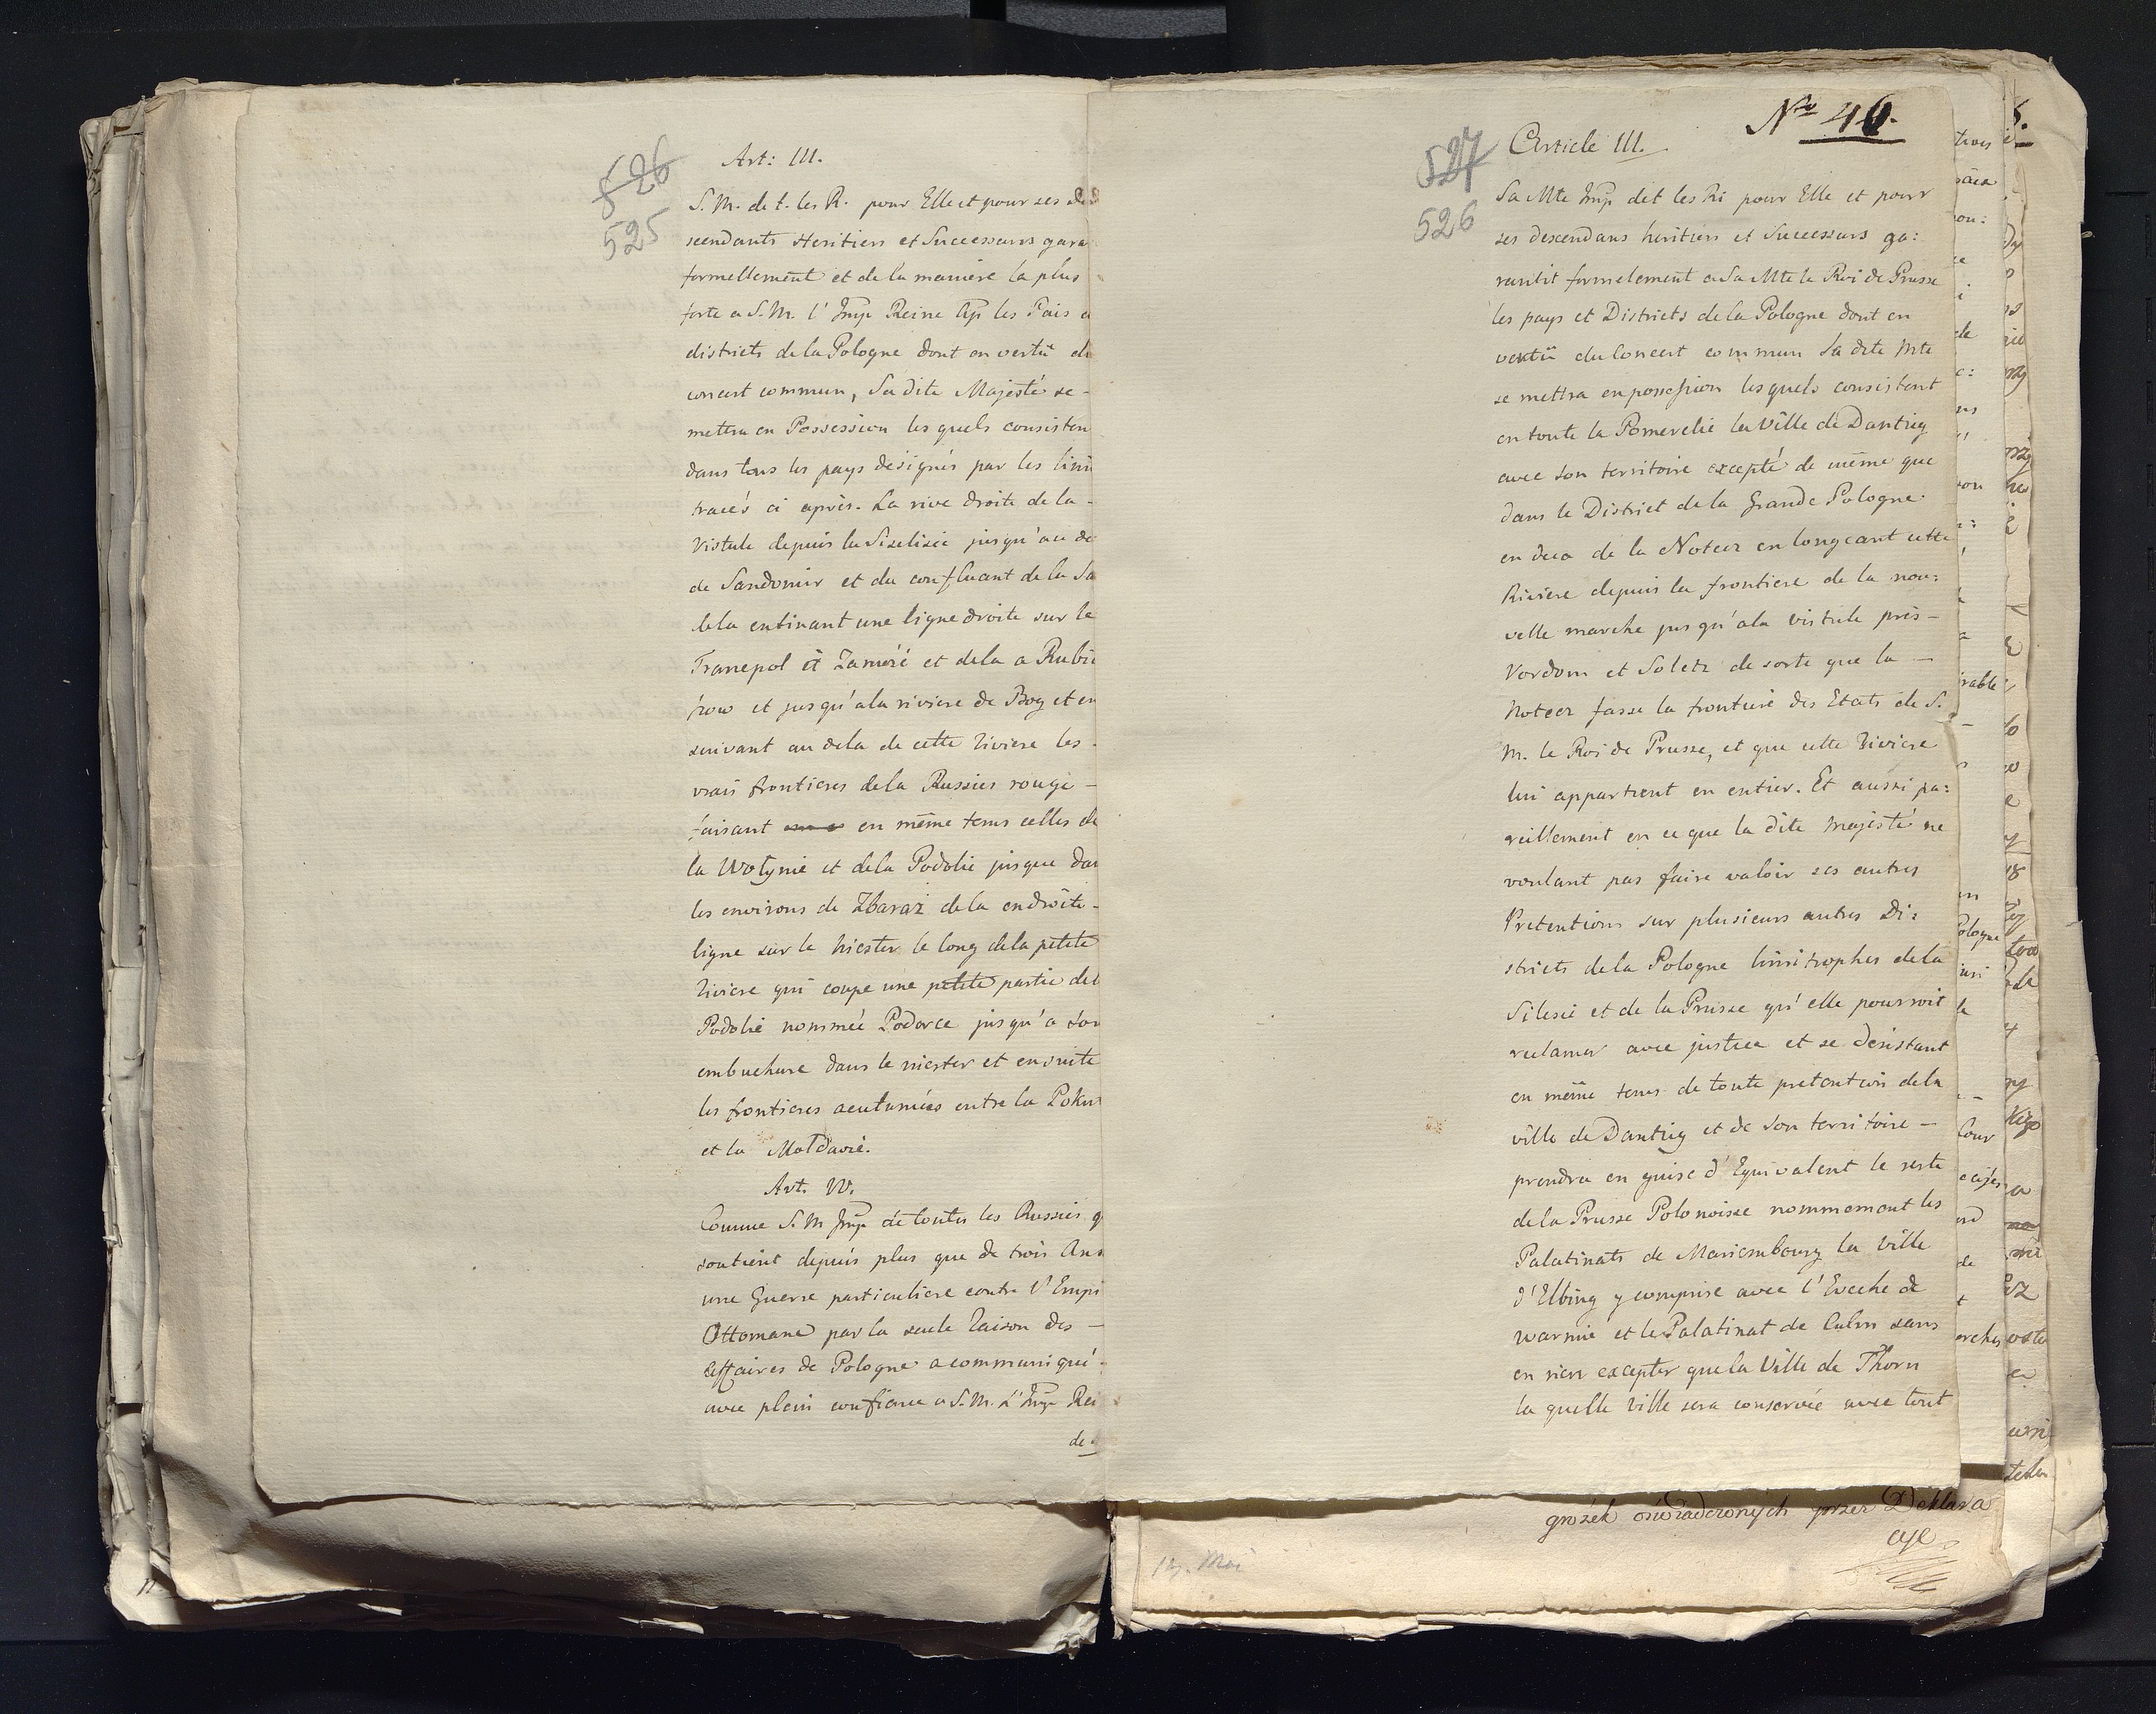 526
525
Art: III.
S. M. de t. les R. pour Elle et pour ses des
scendants Heritiers et Successeurs gara
formellement et de la maniere la plus
forte a S. M. l'Imp Reine Ap les Païs e
districts de la Pologne dont en vertu du
concert commun, Sa dite Majesté se-
mettra en Possession les quels consisten
dans tous les pays désignés par les limi
tracés ci après. La rive droite de la-
Vistule depuis la jusqu'au de
de Sandomir et du confluant de la Sa
dela en tirant une ligne droite sur le
Franepol à Zamoié et dela a Rubie
row et jusqu'a la riviere de Bog et en
suivant au dela de cette riviere les-
vrais frontieres dela Russies rouge-
faisant en même tems celles de
la Wolynie et dela Podolie jusque dan
les environs de Zbaraz dela en droite-
ligne sur le Niester le long dela petite
riviere qui coupe une petite partie del
Podolie nommée Podorce jusqu'a son
embuchure dans le niester et ensuite
les frontieres acutumées entre la Poku
et la Moldavie.
Art. IV.
Comme S. M Imp de toutes les Russies q
soutient depuis plus que de trois Ans
une Guerre particuliere contre l'Empi
Ottomane par la seule raison des-
affaires de Pologne a communiqué-
avec plein confience a S. M. L'Imp Rei
de
527
526
Nro 46.
Article III.
Sa Mte Imp det les Ri pour Elle et pour
ses descendans heritiers et Successeurs ga:
rantit formelement a Sa Mte le Roi de Prusse
les pays et Districts de la Pologne dont en
vertu du Concert commun Sa dite Mte
se mettra en possession lesquels consistent
en toute la Pomerelie la Ville de Dantzig
avec son territoire excepté de même que
dans le District de la Grande Pologne
en deca de la Notecz en longeant cette
Riviere depuis la frontiere de la nou:
velle marche jusqu'a la vistule près-
Vordom et Soletz de sorte que la-
Notecz fasse la frontiere des Etats de S.
M. le Roi de Prusse, et que cette riviere
lui appartient en entier. Et aussi pa:
reillement en ce que la dite Majesté ne
voulant pas faire valoir ses autres
Pretentions sur plusieurs autres Di:
stricts de la Pologne limitrophes dela
Silesie et de la Prusse qu'elle pourroit
reclamer avec justice et se désistant
en même tems de toute pretention dela
ville de Dantzig et de son territoire-
prendra en guise d'Equivalent le reste
de la Prusse Polonoisse nommement les
Palatinats de Mariembourg la Ville
d'Elbing y comprise avec l'Eveche de
warmie et le Palatinat de Culm sans
en rien excepter que la Ville de Thorn
la quelle ville sera conservée avec tout
gróżek oświadczonych przez Deklara
cye
Mai